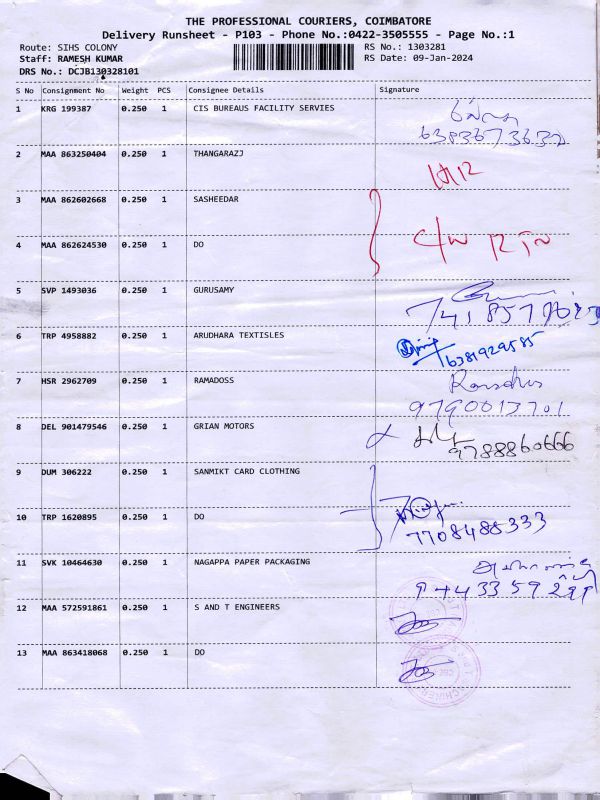 THE PROFESSIONAL COURIERS, COIMBATORE
Delivery Runsheet - P103 - Phone No.:0422-3505555 - Page No.:1
Route: SIHS COLONY
RS No.: 1303281
Staff: RAMESH KUMAR
RS Date: 09-Jan-2024
DRS No.: DCJB130328101
S No Consignment No Weight PCS Consignee Details Signature
1 KRG 199387 0.250 1 CIS BUREAUS FACILITY SERVIES
2 MAA 863250404 0.250 1 THANGARAZJ
3 MAA 862602668 0.250 1 SASHEEDAR
4 MAA 862624530 0.250 1 DO
5 SVP 1493036 0.250 1 GURUSAMY
6 TRP 4958882 0.250 1 ARUDHARA TEXTISLES
6381929585
7 HSR 2962709 0.250 1 RAMADOSS
9790013701
8 DEL 901479546 0.250 1 GRIAN MOTORS
9788860666
9 DUM 306222 0.250 1 SANMIKT CARD CLOTHING
10 TRP 1620895 0.250 1 DO
7708488333
11 SVK 10464630 0.250 1 NAGAPPA PAPER PACKAGING
12 MAA 572591861 0.250 1 S AND T ENGINEERS
13 MAA 863418068 0.250 1 DO